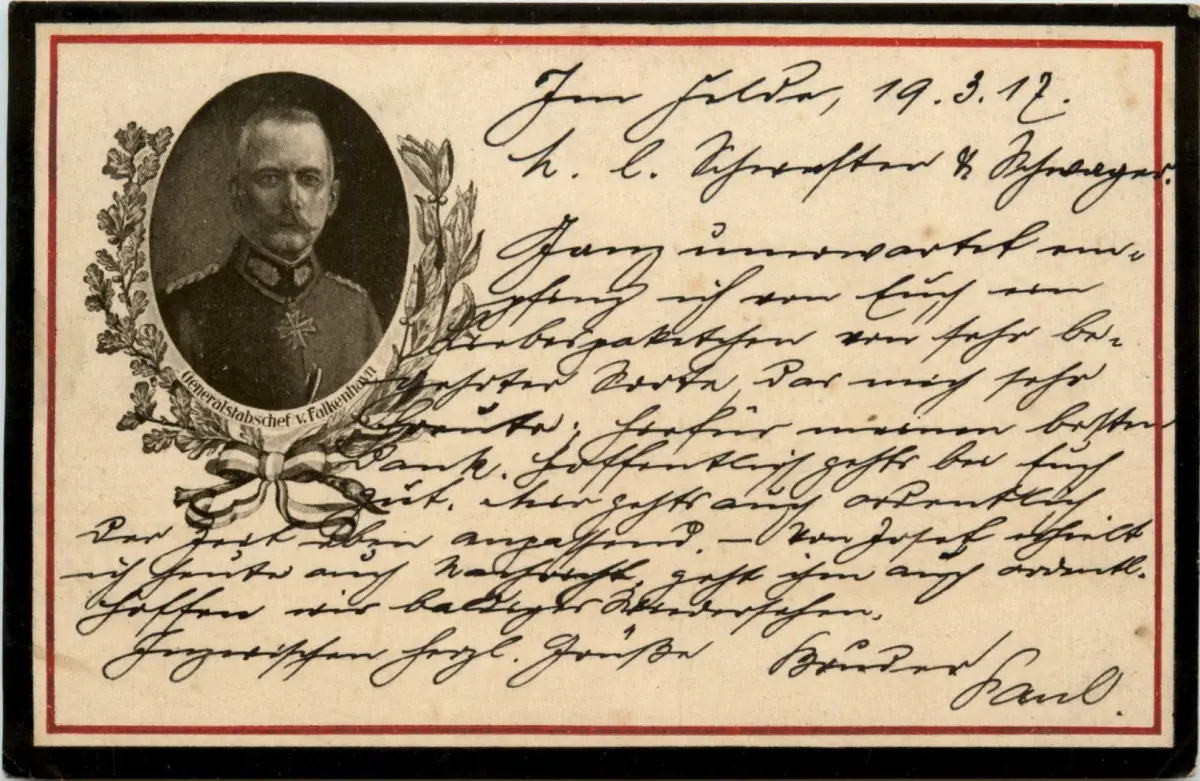 Im Felde, 19.3.17.
M. l. Schwester & Schwager.
Ganz unerwartet em-
pfing ich von Euch ein
Liebespaketchen von sehr be-
gehrter Sorte, das mich sehr
freute; hierfür meinen besten
Dank. Hoffentlich gehts bei Euch
gut. Mir gehts auch ordentlich
der Zeit eben anpassend. – Von Josef erhielt
ich heute auch Nachricht, geht ihm auch ordentl.
Hoffen wir baldiges Wiedersehen.
Inzwischen herzl. Grüße Bruder
Paul.
Generalstabschef v. Falkenhayn